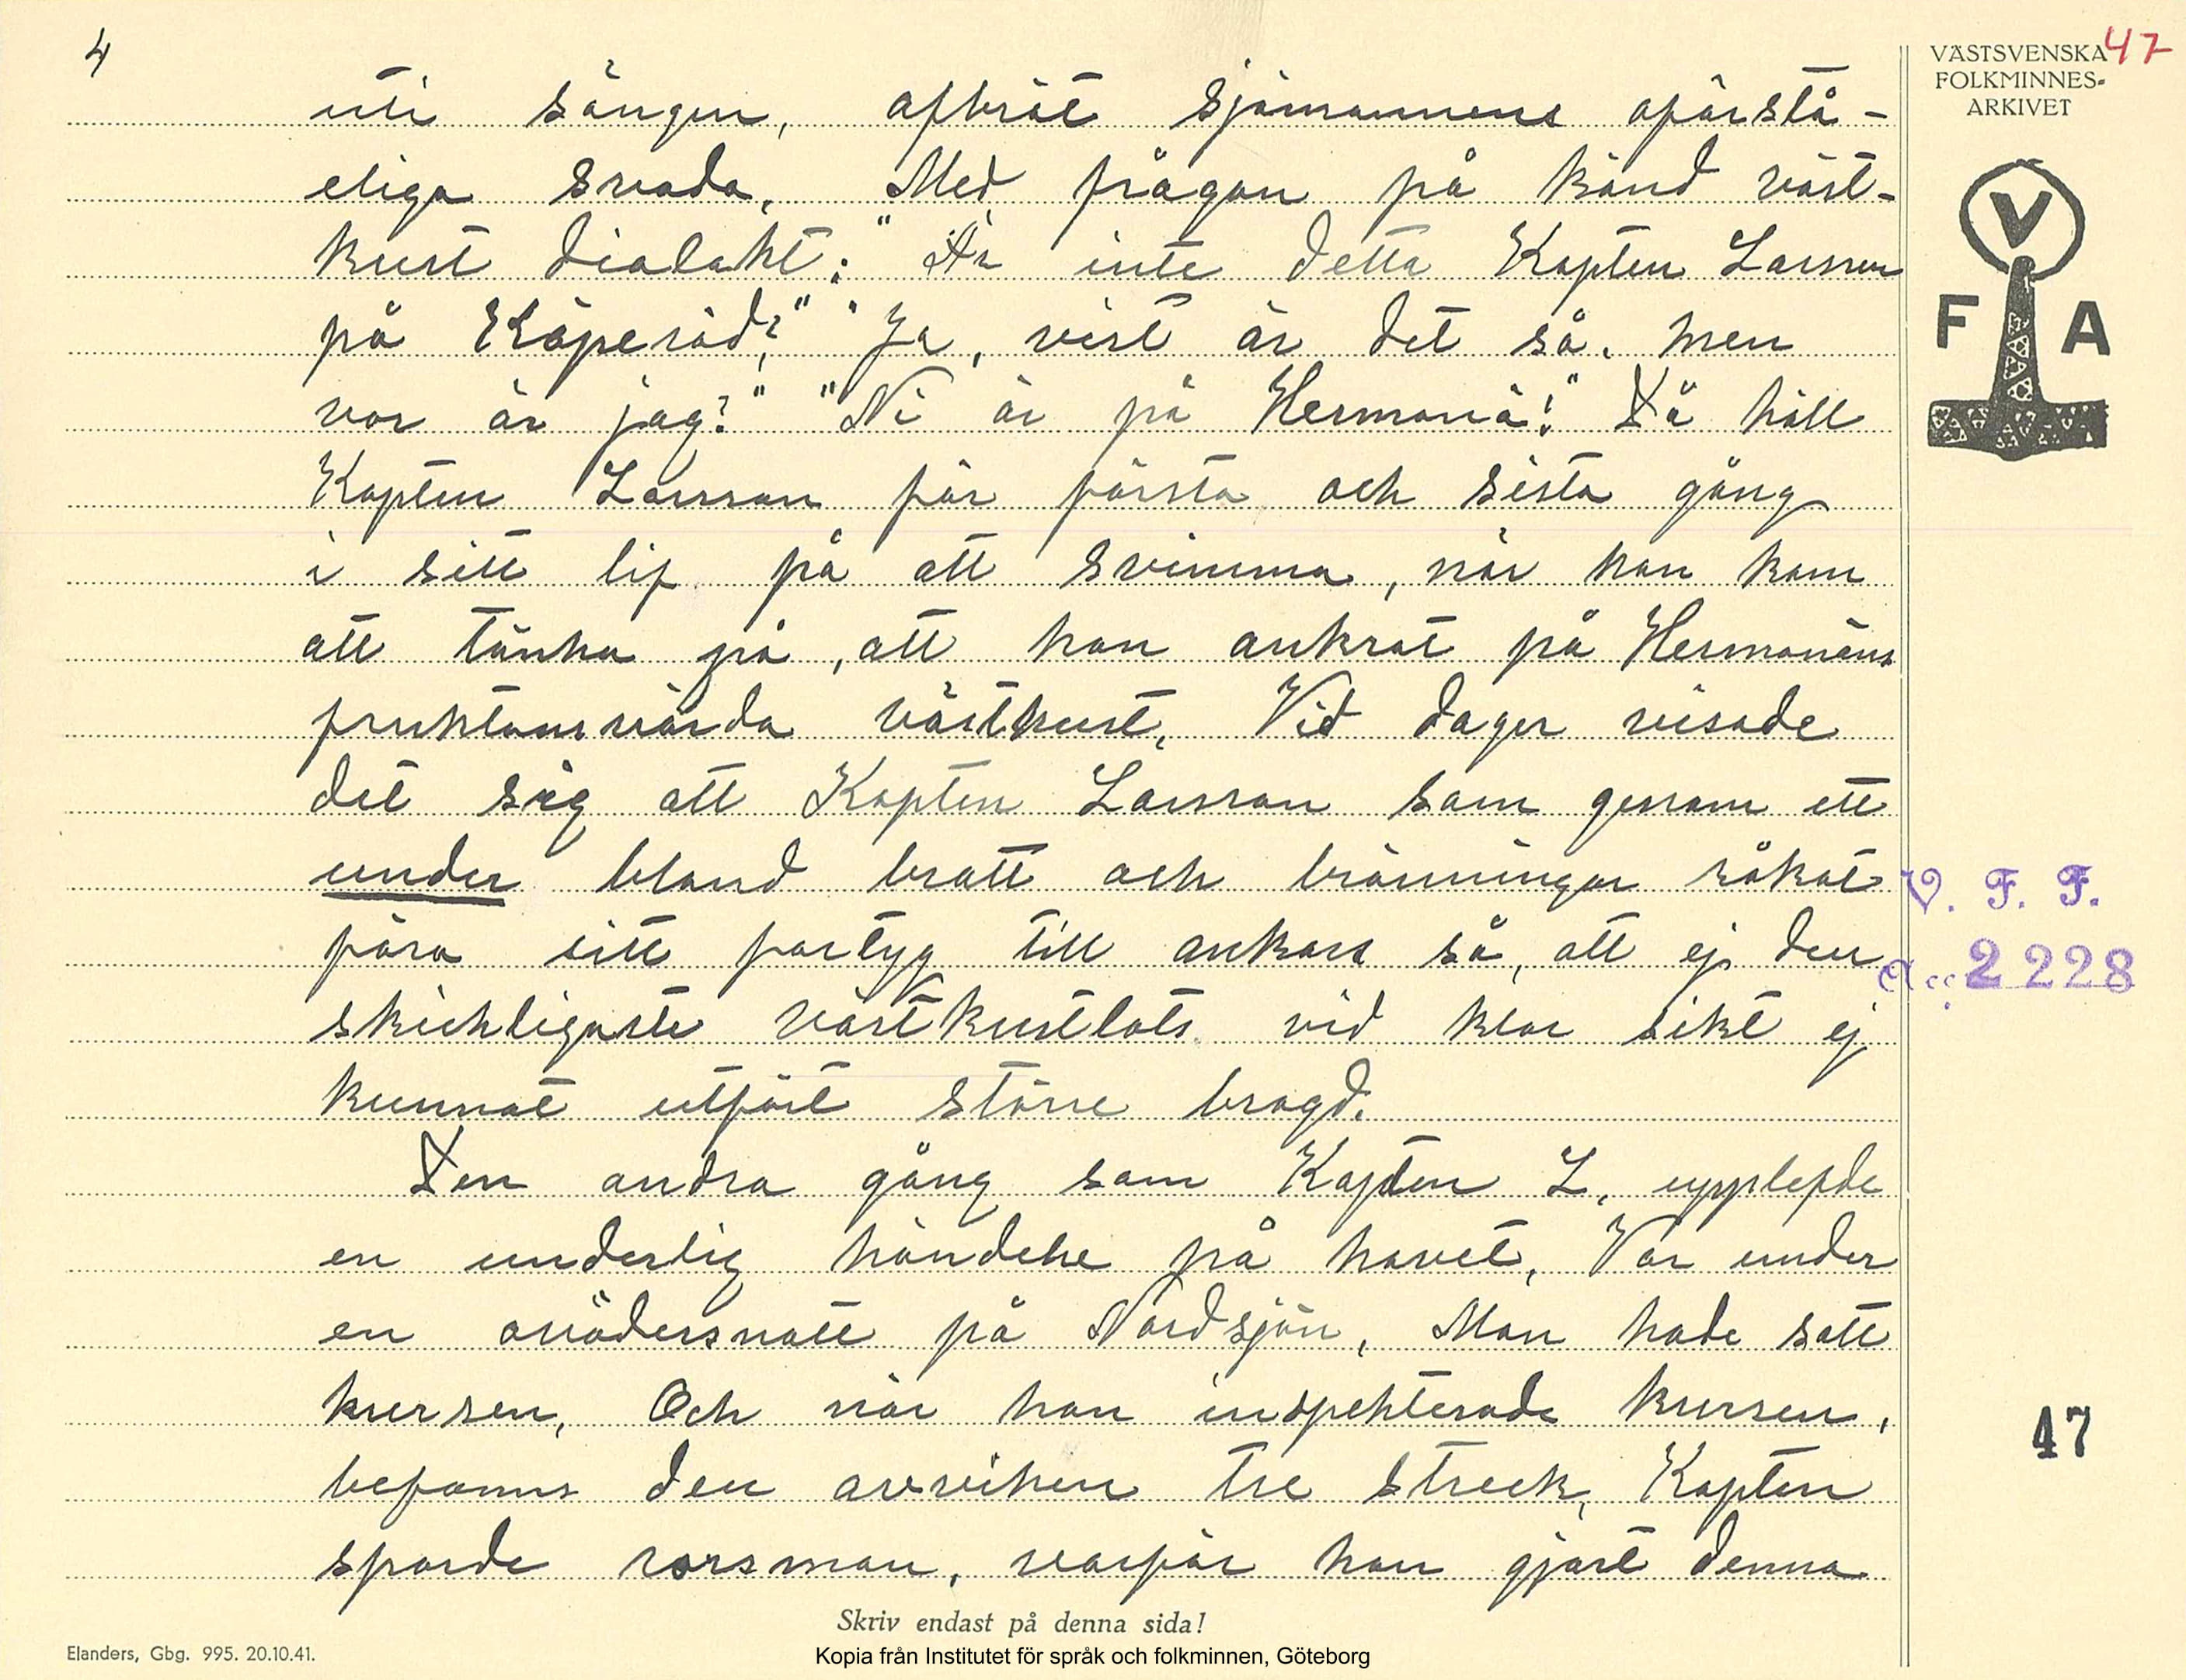 4
47
VÄSTSVENSKA
FOLKMINNES-
ARKIVET
V
F A
uti sängen, afbröt sjömannens oförstå-
eliga svada. Med frågan på känd väst-
kust dialekt: "Är inte detta Kapten Larsson
på Käperöd?" "Ja, vist är det så. men
var är jag?" "Ni är på Hermanö!" Då höll
Kapten Larsson för första och sista gång
i sitt lif på att svimma, när han kom
att tänka på, att han ankrat på Hermanöns
fruktansvärda västkust. Vid dager visade
det sig att Kapten Larsson som genom ett
under bland brott och bränningar råkat
föra sitt fartyg till ankars så, att ej den
skickligaste västkustlots vid klar sikt ej
kunnat utfört större bragd.
Den andra gång som Kapten L. upplefde
en underlig händelse på havet, Var under
en ovädersnatt på Nordsjön. Man hade satt
kursen, Och när han inspekterade kursen,
befanns den avviken tre streck, Kapten
sporde rorsman, varför han gjort denna
V. F. F.
Acc. 2228
47
Skriv endast på denna sida!
Elanders, Gbg. 995. 20.10.41.
Kopia från Institutet för språk och folkminnen, Göteborg